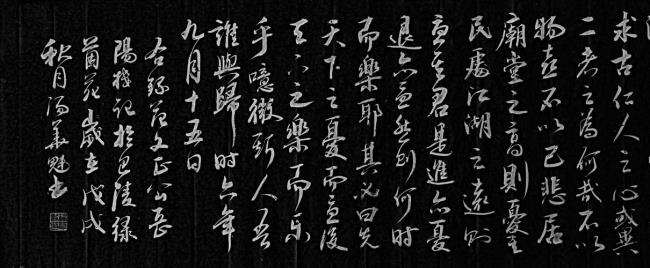 求古仁人之心或異
二者之為何哉不以
物喜不以己悲居
廟堂之高則憂其
民處江湖之遠則
憂其君是進亦憂
退亦憂然則何時
而樂耶其必曰先
天下之憂而憂後
天下之樂而樂
乎噫微斯人吾
誰與歸 時六年
九月十五日
右錄范文正公岳
陽樓記於巴陵綠
茵苑歲在戊戌
秋月湯魁書